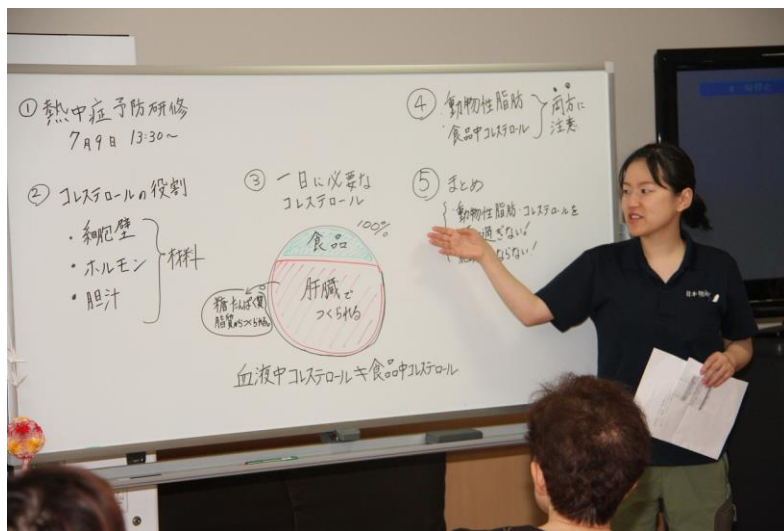 ① 熱中症予防研修
7月9日 13:30~
② コレステロールの役割
・細胞壁
・ホルモン
・胆汁
材料
③ 一日に必要な
コレステロール
100%
食品
肝臓で
つくられる
糖・たんぱく質
脂質からつくられる。
血液中コレステロール≠食品中コレステロール
④ ・動物性脂肪
・食品中コレステロール
両方に
注意
⑤ まとめ
・動物性脂肪・コレステロールを
過ぎない!
ならない!
日本